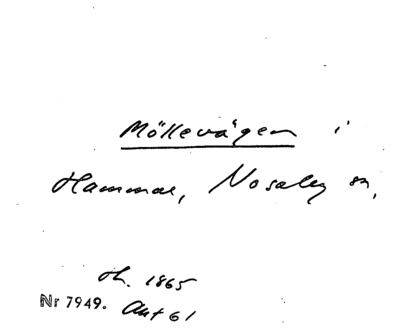 Möllevägen i
Hammar, Nosaby sn,
th. 1865
Nr 7949. Akt 61